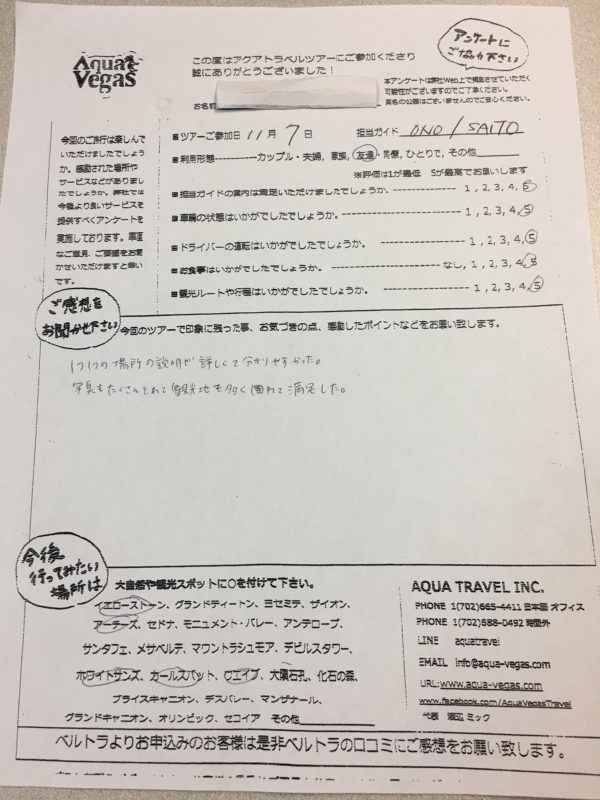 Aqua Vegas
この度はアクアトラベルツアーにご参加くださり
誠にありがとうございました！
アンケートに
ご協力下さい
本アンケートは弊社Web上で掲載させていただく
可能性がございますのでご了承ください。
実名の公開はございませんのでご安心ください。
お名前
今回のご旅行は楽しんで
いただけましたでしょう
か。感動された場所や
サービスなどがありまし
たでしょうか。弊社では
今後より良いサービスを
提供すべくアンケートを
実施しております。率直
なご意見、ご要望をお聞
かせいただけますと幸い
です。
■ツアーご参加日 11月 7日 担当ガイド ONO / SAITO
■利用形態-----------カップル・夫婦, 家族, 友達・同僚, ひとりで, その他
※評価は1が最低 5が最高でお願いします
■担当ガイドの案内は満足いただけましたでしょうか。------------ 1, 2, 3, 4, 5
■車輌の状態はいかがでしたでしょうか。------------------------ 1, 2, 3, 4, 5
■ドライバーの運転はいかがでしたでしょうか。------------------ 1, 2, 3, 4, 5
■お食事はいかがでしたでしょうか。---------------------- なし, 1, 2, 3, 4, 5
■観光ルートや行程はいかがでしたでしょうか。------------------ 1, 2, 3, 4, 5
ご感想を
お聞かせ下さい
今回のツアーで印象に残った事、お気づきの点、感動したポイントなどをお願い致します。
1つ1つの場所の説明が詳しくて分かりやすかった。
写真もたくさんとれて観光地も多く回れて満足した。
今後
行ってみたい
場所は
大自然や観光スポットに○を付けて下さい。
イエローストーン、グランドティートン、ヨセミテ、ザイオン、
アーチーズ、セドナ、モニュメント・バレー、アンテロープ、
サンタフェ、メサベルデ、マウントラシュモア、デビルスタワー、
ホワイトサンズ、カールスバット、ウエイブ、大隕石孔、化石の森、
ブライスキャニオン、デスバレー、マンザナール、
グランドキャニオン、オリンピック、セコイア その他
AQUA TRAVEL INC.
PHONE 1(702)665-4411 日本語 オフィス
PHONE 1(702)688-0492 時間外
LINE aquatravel
EMAIL info@aqua-vegas.com
URL:www.aqua-vegas.com
www.facebook.com/AquaVegasTravel
代表 渡辺 ミック
ベルトラよりお申込みのお客様は是非ベルトラの口コミにご感想をお願い致します。